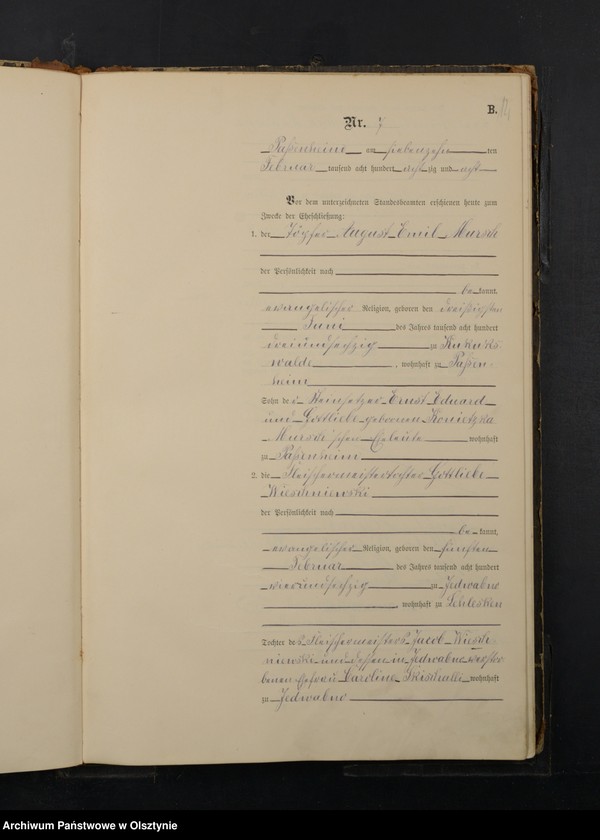 B.
Nr. 7
Paßenheim am siebenzehn ten
Februar tausend acht hundert acht zig und acht
Vor dem unterzeichneten Standesbeamten erschienen heute zum
Zwecke der Eheschließung:
1. der Töpfer August Emil Mursch
der Persönlichkeit nach
be kannt,
evangelischer Religion, geboren den dreißigsten
Juni des Jahres tausend acht hundert
dreiundsechzig zu Kukuks
walde, wohnhaft zu Paßen-
heim
Sohn des Steinsetzer Ernst Eduard
und Gottliebe geborenen Konietzka
Mursch'schen Eheleute wohnhaft
zu Paßenheim
2. die Fleischermeistertochter Gottliebe
Wieschniewski
der Persönlichkeit nach
be kannt,
evangelischer Religion, geboren den fünften
Februar des Jahres tausend acht hundert
vierundsechzig zu Jedwabno
, wohnhaft zu Schlesken
Tochter des Fleischermeisters Jacob Wiesch-
niewski und dessen in Jedwabno verstor
benen Ehefrau Caroline wohnhaft
zu Jedwabno
Archiwum Państwowe w Olsztynie